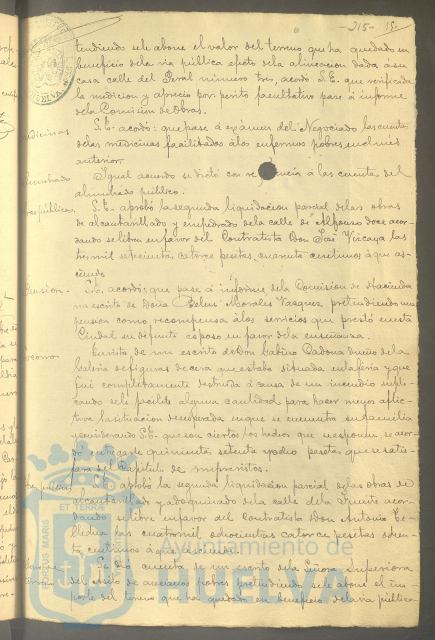 -215-
tendiendo se le abone el valor del terreno que ha quedado en
beneficio de la via pública efecto de la alineacion dada á su
casa calle del Peral número tres, acordó S.E. que verificada
la medicion y aprecio por perito facultativo pase á informe
de la Comision de Obras.
S.E. acordó: que pase á exámen del Negociado las cuentas
de las medicinas facilitadas á los enfermos pobres en el mes
anterior.
Igual acuerdo se dictó con referencia á las cuentas del
alumbrado público.
S.E. aprobó la segunda liquidacion parcial de las obras
de alcantarillado y empedrado de la calle de Alfonso doce acor-
dando se libre en favor del Contratista Don José Vizcaya las
tres mil setecientas catorce pesetas, cuarenta centimos á que as-
ciende
S.E. acordó: que pase á informe de la Comision de Hacienda
un escrito de Doña Belen Morales Vazquez, pretendiendo una
pension como recompensa á los servicios que prestó en esta
Ciudad su difunto esposo en favor de la enseñanza.
En vista de un escrito de Don Gabino Cadova dueño de la
Galeria de figuras de cera que estaba situada en la feria y que
fué completamente destruida á causa de un incendio supli-
cando se le facilite alguna cantidad para hacer menos aflic-
tiva la situacion desesperada en que se encuentra su familia
y considerando S.E. que son ciertos los hechos que se exponen, se acor-
dó entregar quinientas setenta y ocho pesetas que se satis-
faran del Capitulo de imprevistos.
S.E. aprobó la segunda liquidacion parcial de las obras de
alcantarillado y adoquinado de la calle de la Fuente acor-
dando se libre en favor del Contratista Don Antonio
las cuatro mil ochocientas catorce pesetas ochen-
ta centimos á que asciende.
Se dió cuenta de un escrito de la Señora Superiora
del Asilo de ancianos pobres pretendiendo se le abone el im-
porte del terreno que ha quedado en beneficio de la via pública
Ayuntamiento de
HUELVA
PORTUS MARIS
ET TERRAE